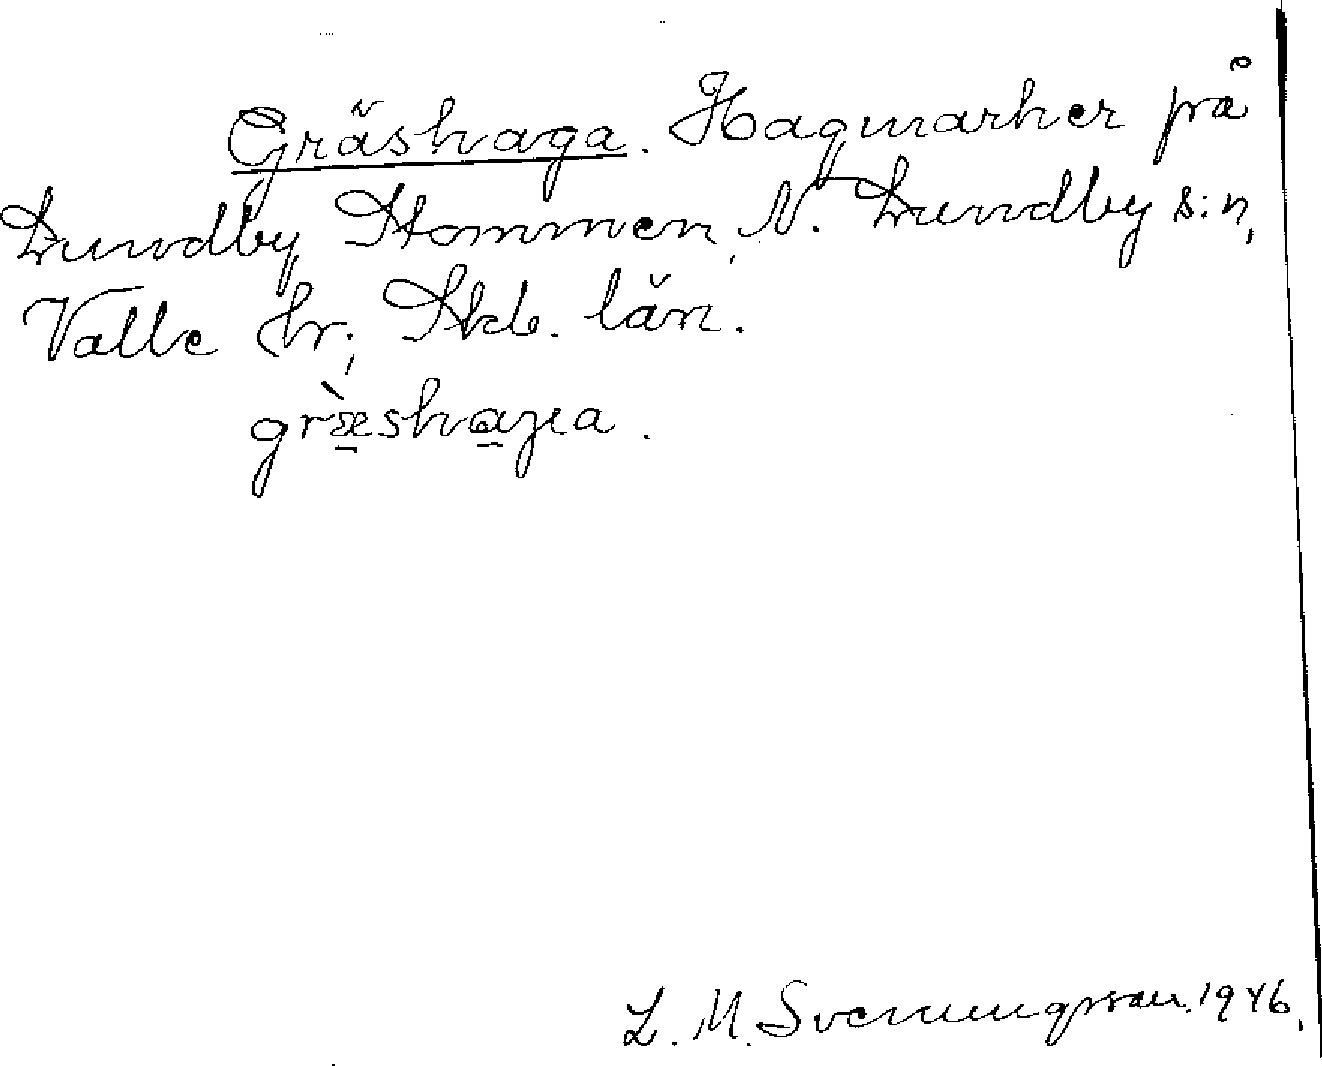 Gräshaga. Hagmarker på
Lundby Stommen, N. Lundby s:n,
Valle hr; Skb. län.
græ̀shaga.
L. M. Svenungsson. 1946.